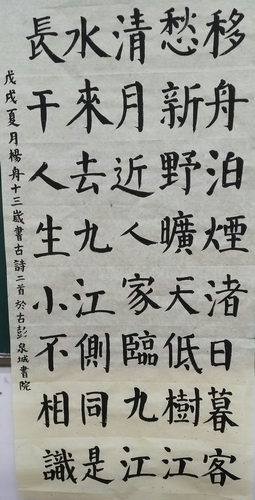 移舟泊煙渚日暮客
愁新野曠天低樹江
清月近人家臨九江
水來去九江側同是
長干人生小不相識
戊戌夏月楊舟十三歲書古詩二首於古彭泉城書院